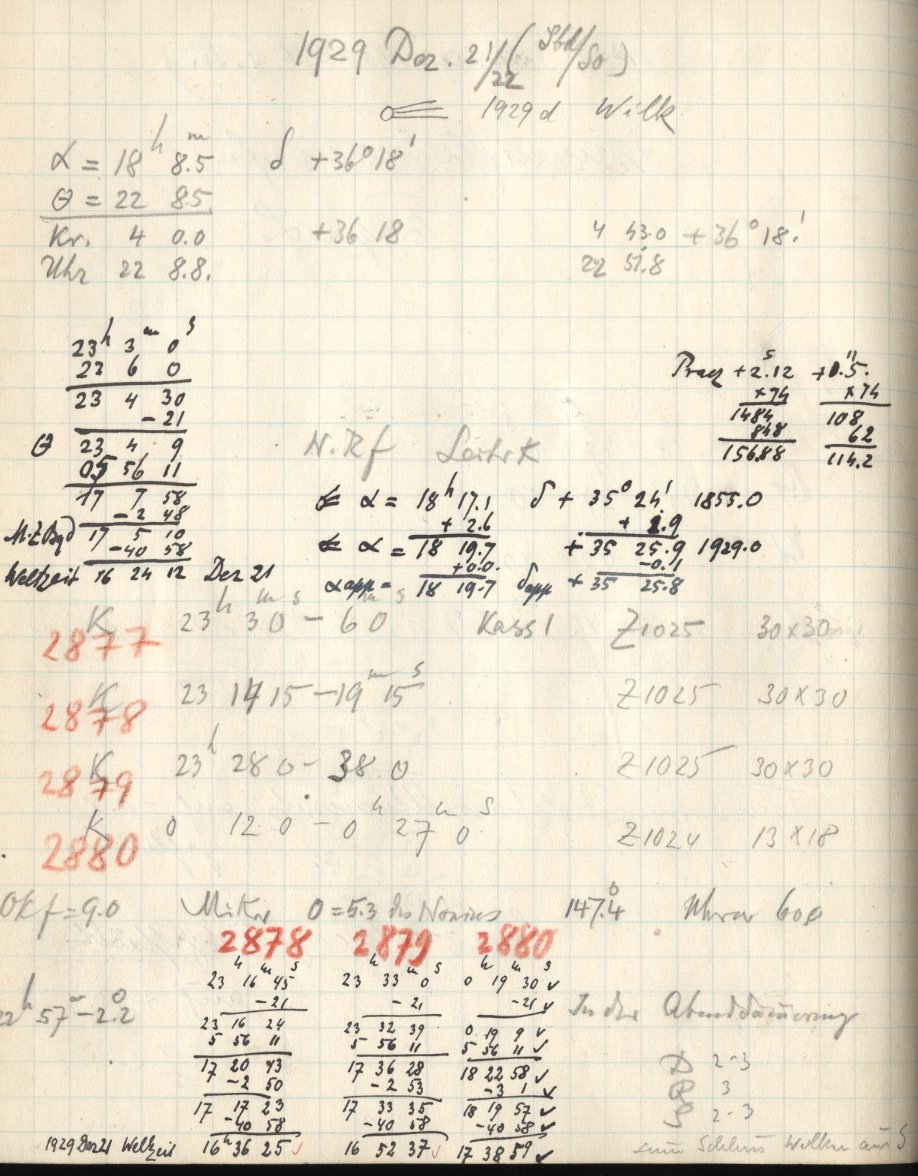 1929 Dez. 21/22 (Sbd/So)
1929d Wilk
α = 18h 8.5m δ +36° 18'
θ = 22 8.5
Kr. 4 0.0 +36 18 4 43.0 +36° 18!
Uhr 22 8.8. 22 51.8
23h 3m 0s
23 6 0
23 4 30
-21
θ 23 4 9
05 56 11
17 7 58
-2 48
M.Z.Bgd 17 5 10
-40 58
Weltzeit 16 24 12 Dez 21
Praez +2.12s +1.5"
×74 ×74
1484 108
848 62
156.88 114.2
N.Rf Leitrk
α = 18h 17.1 δ + 35° 24' 1855.0
+ 2.6 + 1.9
α = 18 19.7 + 35 25.9 1929.0
+0.0 -0.1
αapp = 18 19.7 δapp + 35 25.8
K 2877 23h 3m 0s - 6m 0s Kass 1 Z1025 30×30
K 2878 23 14 15 - 19m 15s Z1025 30×30
K 2879 23h 28 0 - 38 0 Z1025 30×30
K 2880 0 12 0 - 0h 27m 0s Z1024 13×18
Okf = 9.0 Mikr 0 = 5.3 des Nonius 147.4°
22h 57m -2.2°
2878
23h 16m 45s
-21
23 16 24
5 56 11
17 20 43
-2 50
17 17 23
-40 58
1929 Dez 21 Weltzeit 16h 36 25
2879
23h 33m 0s
-21
23 32 39
5 56 11
17 36 28
-2 53
17 33 35
-40 58
16 52 37
2880
0h 19m 30s ✓
-21 ✓
0 19 9 ✓
5 56 11 ✓
18 22 58 ✓
-3 1 ✓
18 19 57 ✓
-40 58 ✓
17 38 59 ✓
In der Abenddämmerung
2-3
3
2-3
zum Schluss Wolken aus S